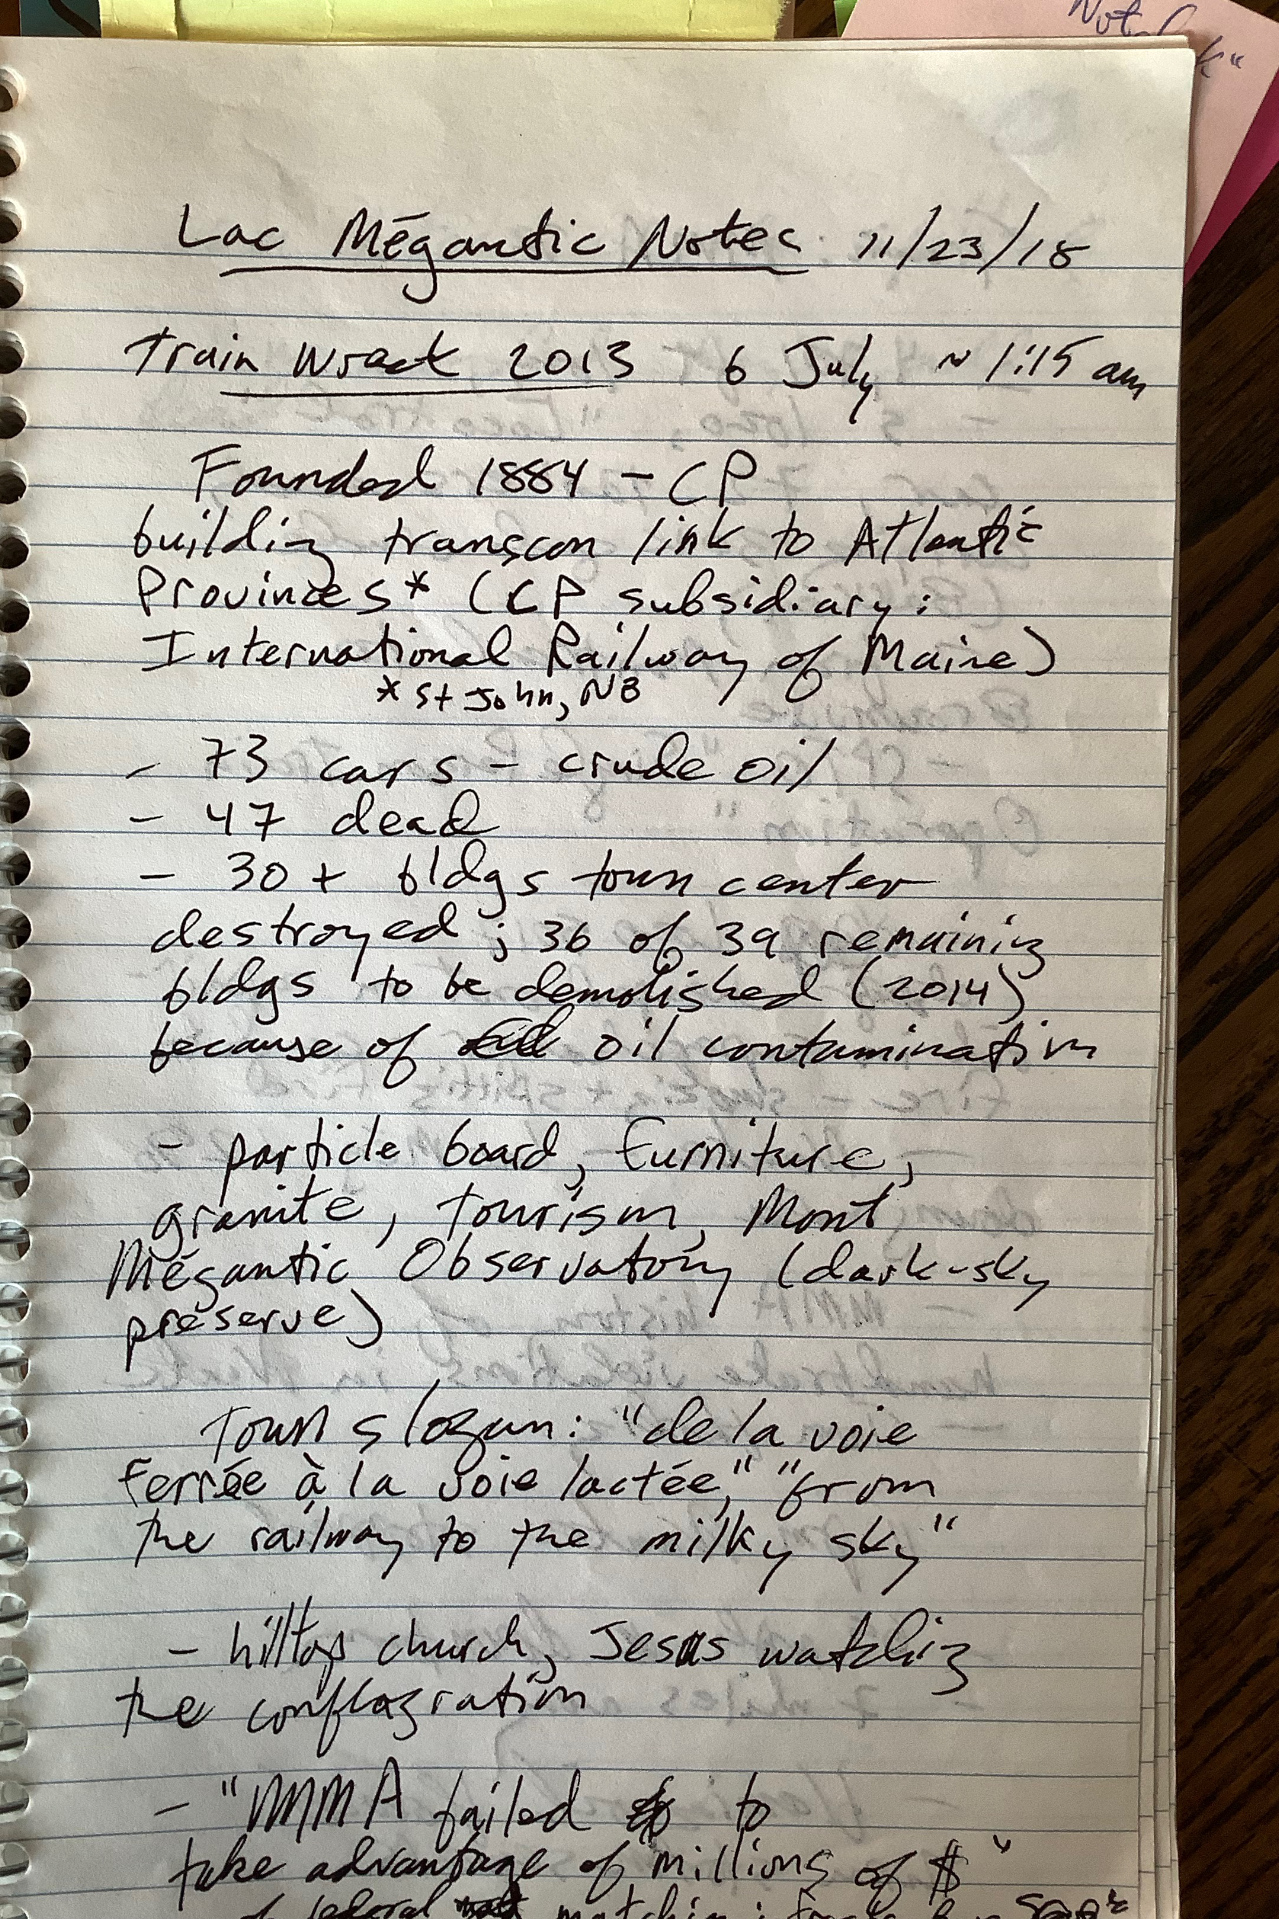 Lac Mégantic Notes 11/23/18
Train Wreck 2013 6 July ~ 1:15 am
Founded 1884 – CP
building transcon link to Atlantic
Provinces* (CP subsidiary:
International Railway of Maine)
* St John, NB
– 73 cars – crude oil
– 47 dead
– 30+ bldgs town center
destroyed; 36 of 39 remaining
bldgs to be demolished (2014)
because of oil contamination
– particle board, furniture,
granite, tourism, Mont
Mégantic Observatory (dark-sky
preserve)
Town slogan: "de la voie
ferrée à la voie lactée," "from
the railway to the milky sky"
– hilltop church, Jesus watching
the conflagration
– "MMA failed to
take advantage of millions of $"
of federal